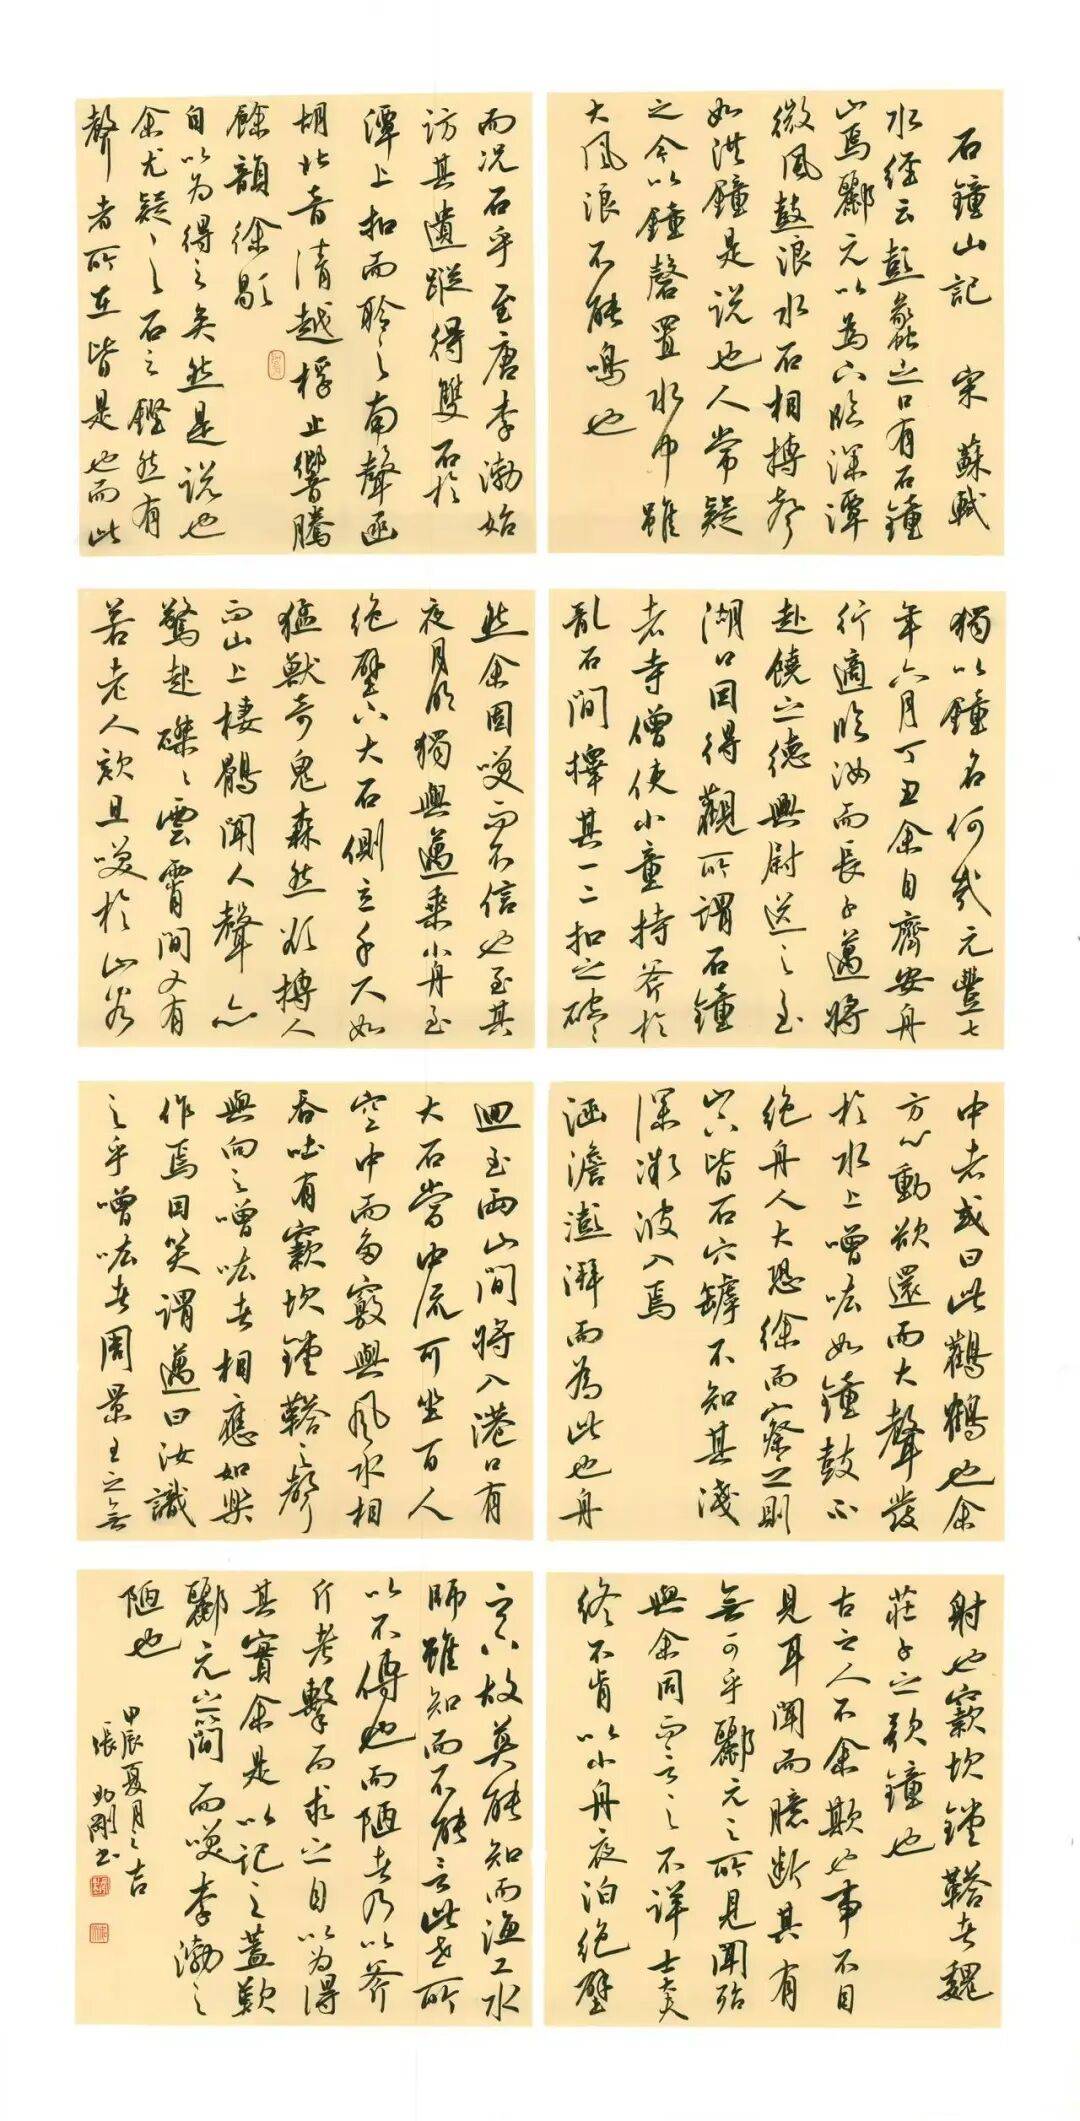 石鐘山記 宋 蘇軾
水经云彭蠡之口有石鐘
山焉酈元以為下临深潭
微风鼓浪水石相搏聲
如洪鐘是说也人常疑
之今以鐘磬置水中雖
大风浪不能鸣也
而况石乎至唐李渤始
访其遺蹤得雙石於
潭上扣而聆之南聲函
胡北音清越桴止響騰
餘韻徐歇
自以为得之矣然是说也
余尤疑之石之鏗然有
聲者所在皆是也而此
獨以鐘名何哉元豐七
年六月丁丑余自齊安舟
行適临汝而長子邁將
赴饒之德興尉送之至
湖口因得觀所謂石鐘
者寺僧使小童持斧於
亂石間擇其一二扣之硿々
然余固笑而不信也至其
夜月明獨與邁乘小舟至
绝壁下大石側立千尺如
猛獸奇鬼森然欲搏人
而山上棲鶻聞人聲亦
驚起磔々雲霄間又有
若老人欬且笑於山谷
中者或曰此鸛鶴也余
方心動欲還而大聲發
於水上噌吰如鐘鼓不
绝舟人大恐徐而察之則
山下皆石穴罅不知其淺
深微波入焉
涵澹澎湃而為此也舟
迴至兩山間將入港口有
大石當中流可坐百人
空中而多竅與风水相
吞吐有窾坎鏜鞳之聲
與向之噌吰者相應如樂
作焉因笑謂邁曰汝識
之乎噌吰者周景王之無
射也窾坎鏜鞳者魏
莊子之歌鐘也
古之人不余欺也事不目
見耳聞而臆斷其有
無可乎酈元之所見聞殆
與余同而言之不詳士大夫
終不肯以小舟夜泊绝壁
之下故莫能知而漁工水
師雖知而不能言此世所
以不傳也而陋者乃以斧
斤考擊而求之自以为得
其實余是以记之蓋歎
酈元之簡而笑李渤之
陋也
甲辰夏月之吉
張 剛书